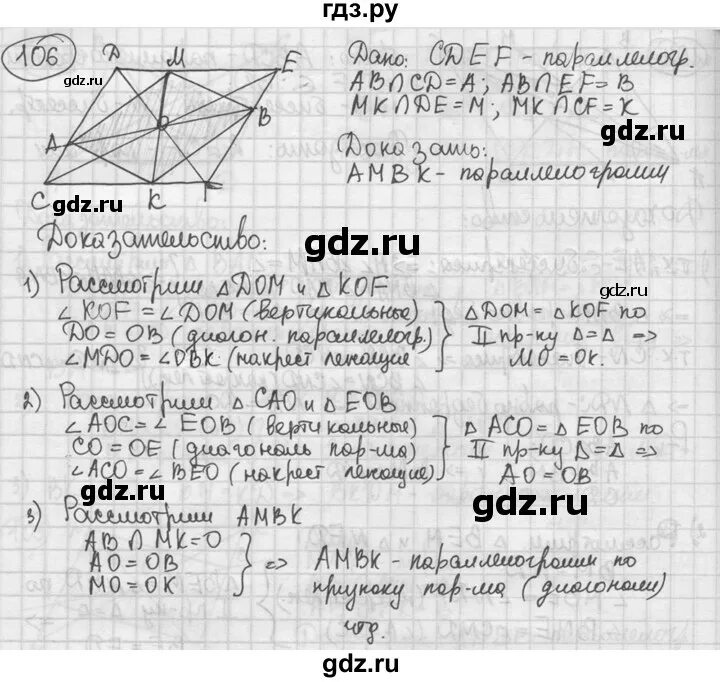 гдз.ру
106
D M E
A O B
C K F
Дано: CDEF - параллелогр.
AB∩CD=A; AB∩EF=B
MK∩DE=M; MK∩CF=K
Доказать:
AMBK - параллелограмм
Доказательство:
1) Рассмотрим △DOM и △KOF
∠KOF=∠DOM (вертикальные)
DO=OB (диагон. параллелогр.)
∠MDO=∠OBK (накрест лежащие
△DOM=△KOF по
II пр-ку △=△ =>
MO=OK.
2) Рассмотрим △CAO и △EOB
∠AOC=∠EOB (вертикальные)
CO=OE (диагональ пар-ма)
∠ACO=∠BEO (накрест лежащие)
△ACO=△EOB по
II пр-ку △=△ =>
AO=OB
3) Рассмотрим AMBK
AB∩MK=O
AO=OB
MO=OK
=> AMBK - параллелограмм по
признаку пар-ма (диагонали)
чтд.
gdz.ru
gdz.ru
gdz.ru
gdz.ru
gdz.ru
gdz.ru
gdz.ru
gdz.ru
gdz.ru
gdz.ru
gdz.ru